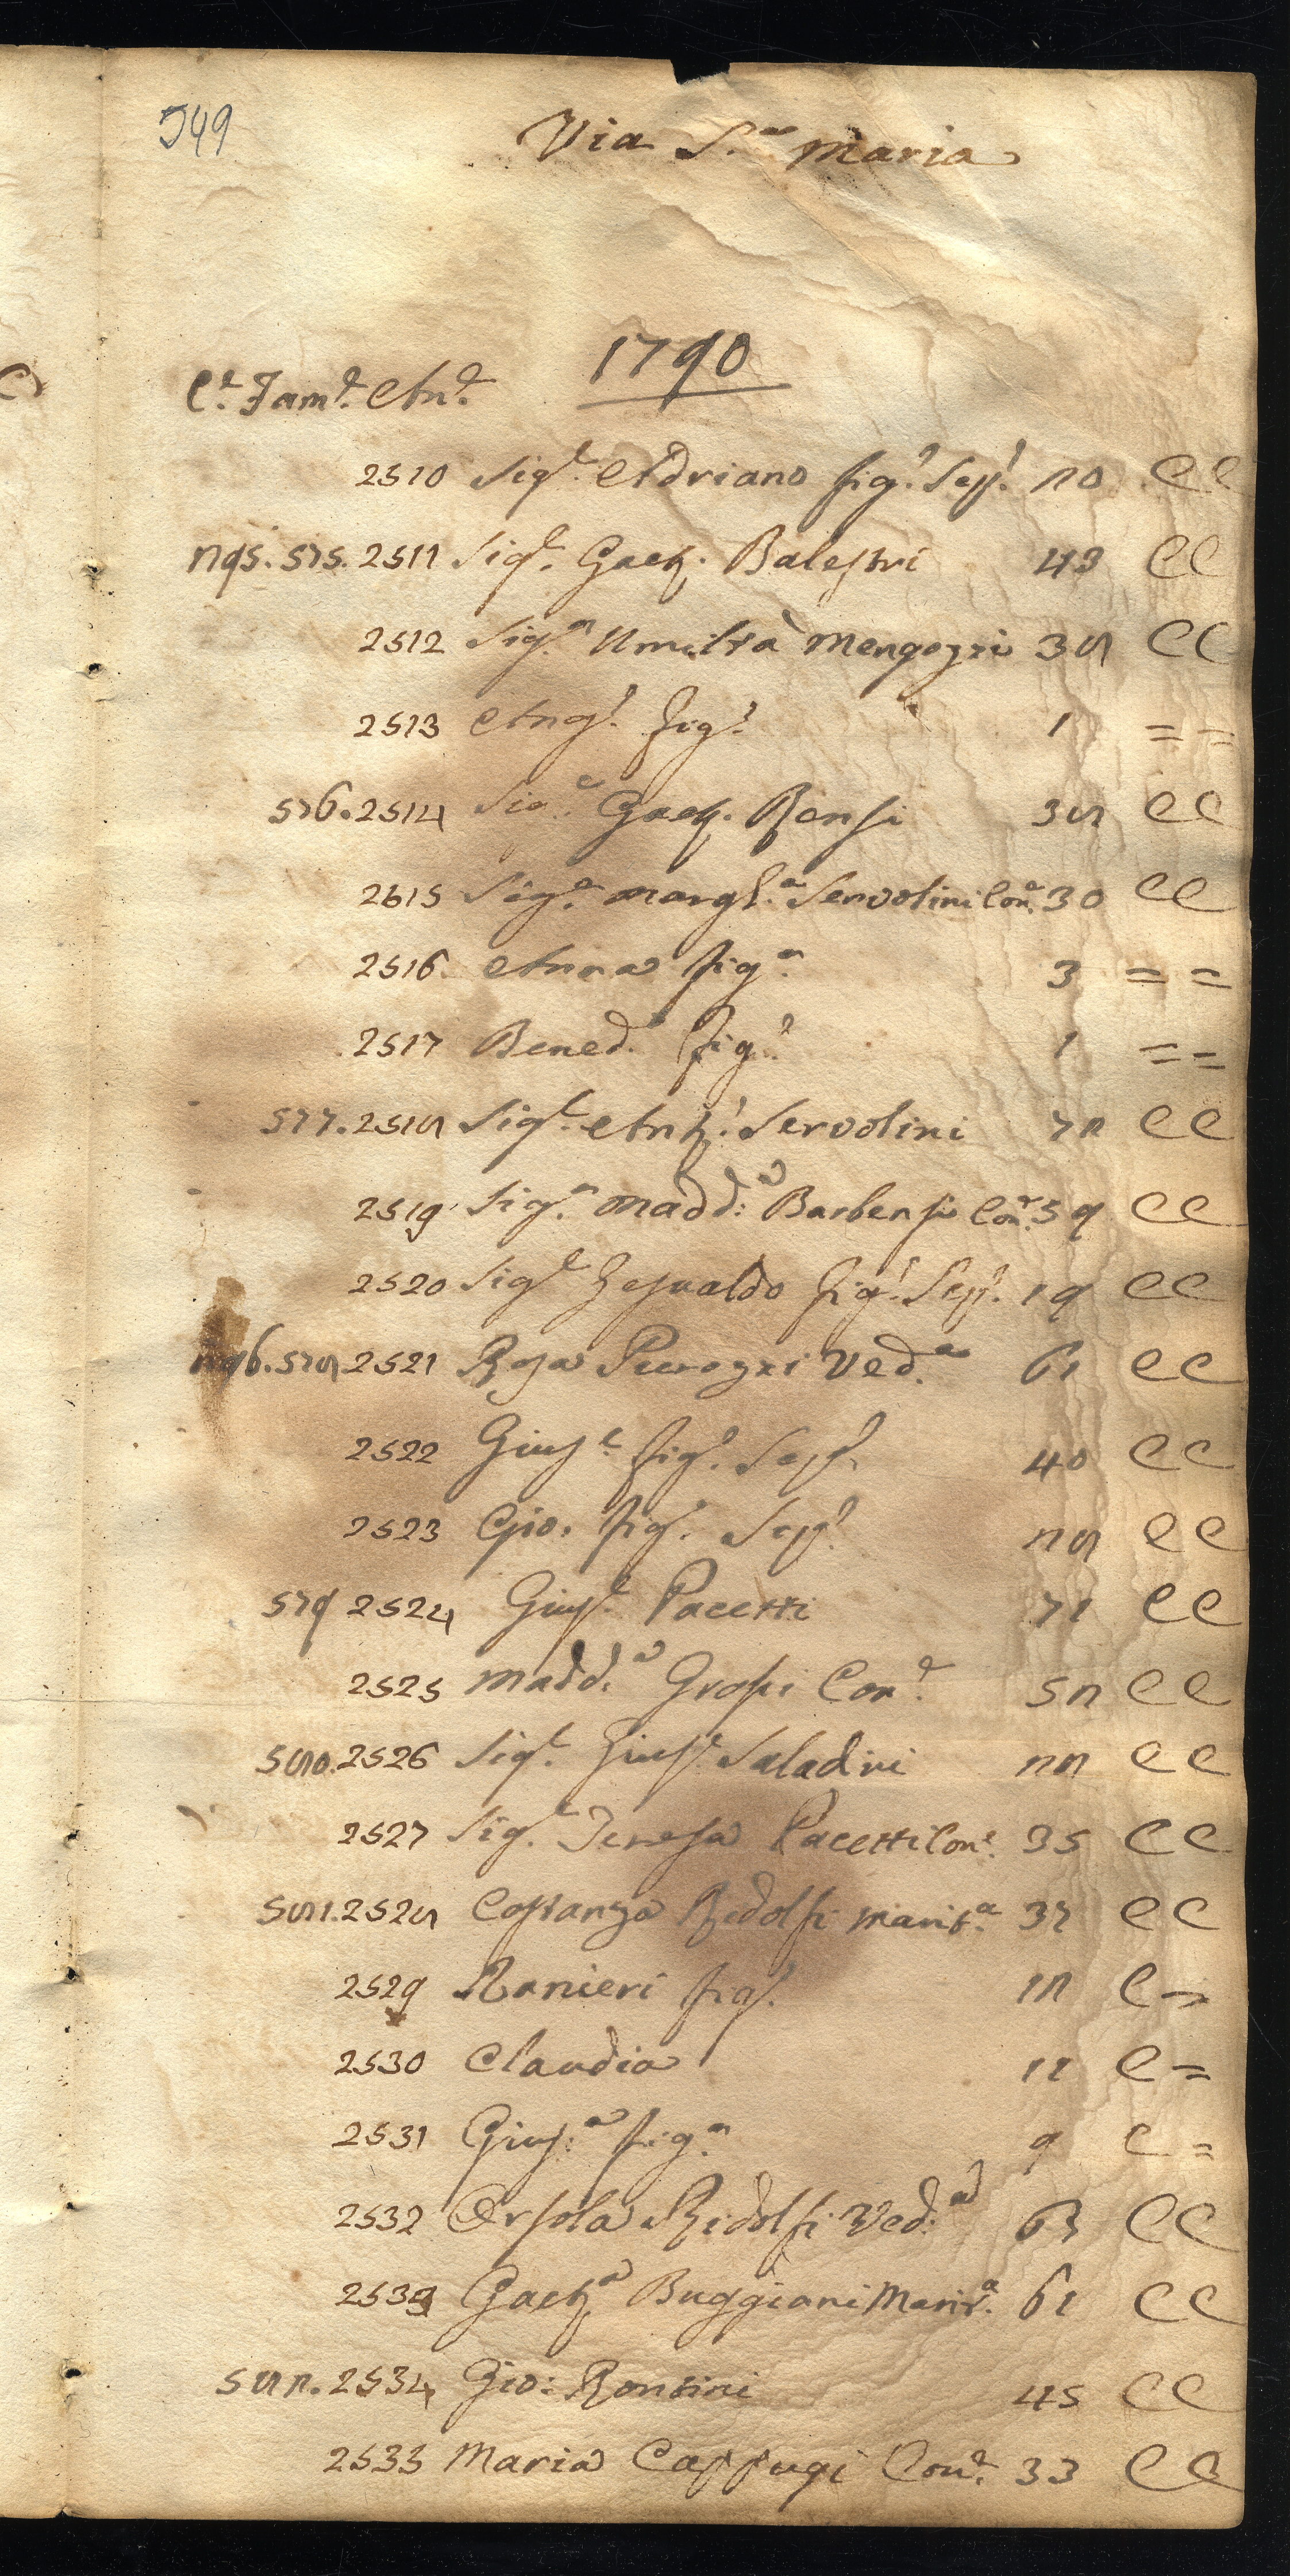 549
Via S.ª Maria
1790
C.e Fam.e An.e
2510 Sig.e Adriano fig.o Sep.o 20 C C
295. 575. 2511 Sig.e Gaet.o Balestri 43 C C
2512 Sig.ª Umiltà Mengozzi 38 C C
2513 Ang.o fig.o 1 = =
576. 2514 Sig.e Gaet.o Bensi 38 C C
2615 Sig.ª Margh.ª Servolini Con.e 30 C C
2516 Anna fig.ª 3 = =
2517 Bened.o fig.o 1 = =
577. 2518 Sig.e Ant.o Servolini 72 C C
2519 Sig.ª Madd.ª Barbensi Con.e 59 C C
2520 Sig.e Gesualdo fig.o Sep.o 19 C C
296. 578. 2521 Rosa Ved.ª 61 C C
2522 Gius.e fig.o Sep.o 40 C C
2523 Gio. fig.o Sep.o 28 C C
579 2524 Gius.e Pacetti 71 C C
2525 Madd.ª Grossi Con.e 52 C C
580. 2526 Sig.e Gius.e Saladini C C
2527 Sig.ª Teresa Pacetti Con.e 35 C C
581. 2528 Costanza Ridolfi Marit.ª 37 C C
2529 Ranieri fig.o 12 C =
2530 Claudia 11 C =
2531 Gius.ª fig.ª 9 C =
2532 Orsola Ridolfi Ved.ª 63 C C
2533 Gaet.ª Buggiani Marit.ª 61 C C
582. 2534 Gio: Rontini 45 C C
2535 Maria Cappugi Con.e 33 C C